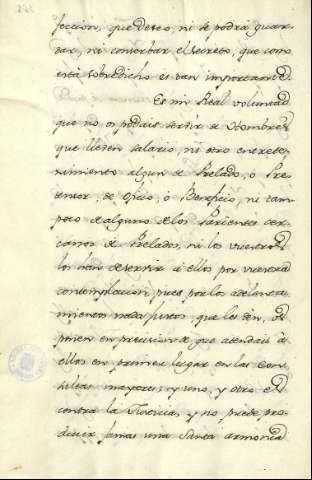 feccion, que deseo, ni se podrá guar
dar, ni conserbar el secreto, que como
está sobredicho es tan importante.
Es mi Real voluntad
que no os podais servir de Hombres
que lleben salario, ni otro entrete
nimiento algun de Prelado, ó Pre
tensor, de oficio, ó Beneficio, ni tam
poco de alguno de los Parientes cer
canos de Prelados, ni los vuestros
los han de servir á ellos por vuestra
contemplacion, pues por los adelanta
mientos nada justos, que les den, os
ponen en precision de que atendais á
ellos en primer lugar en las Con
sultas mayores, y uno, y otro es
contra la Justicia, y no puede pro
ducir jamas una Santa armonia